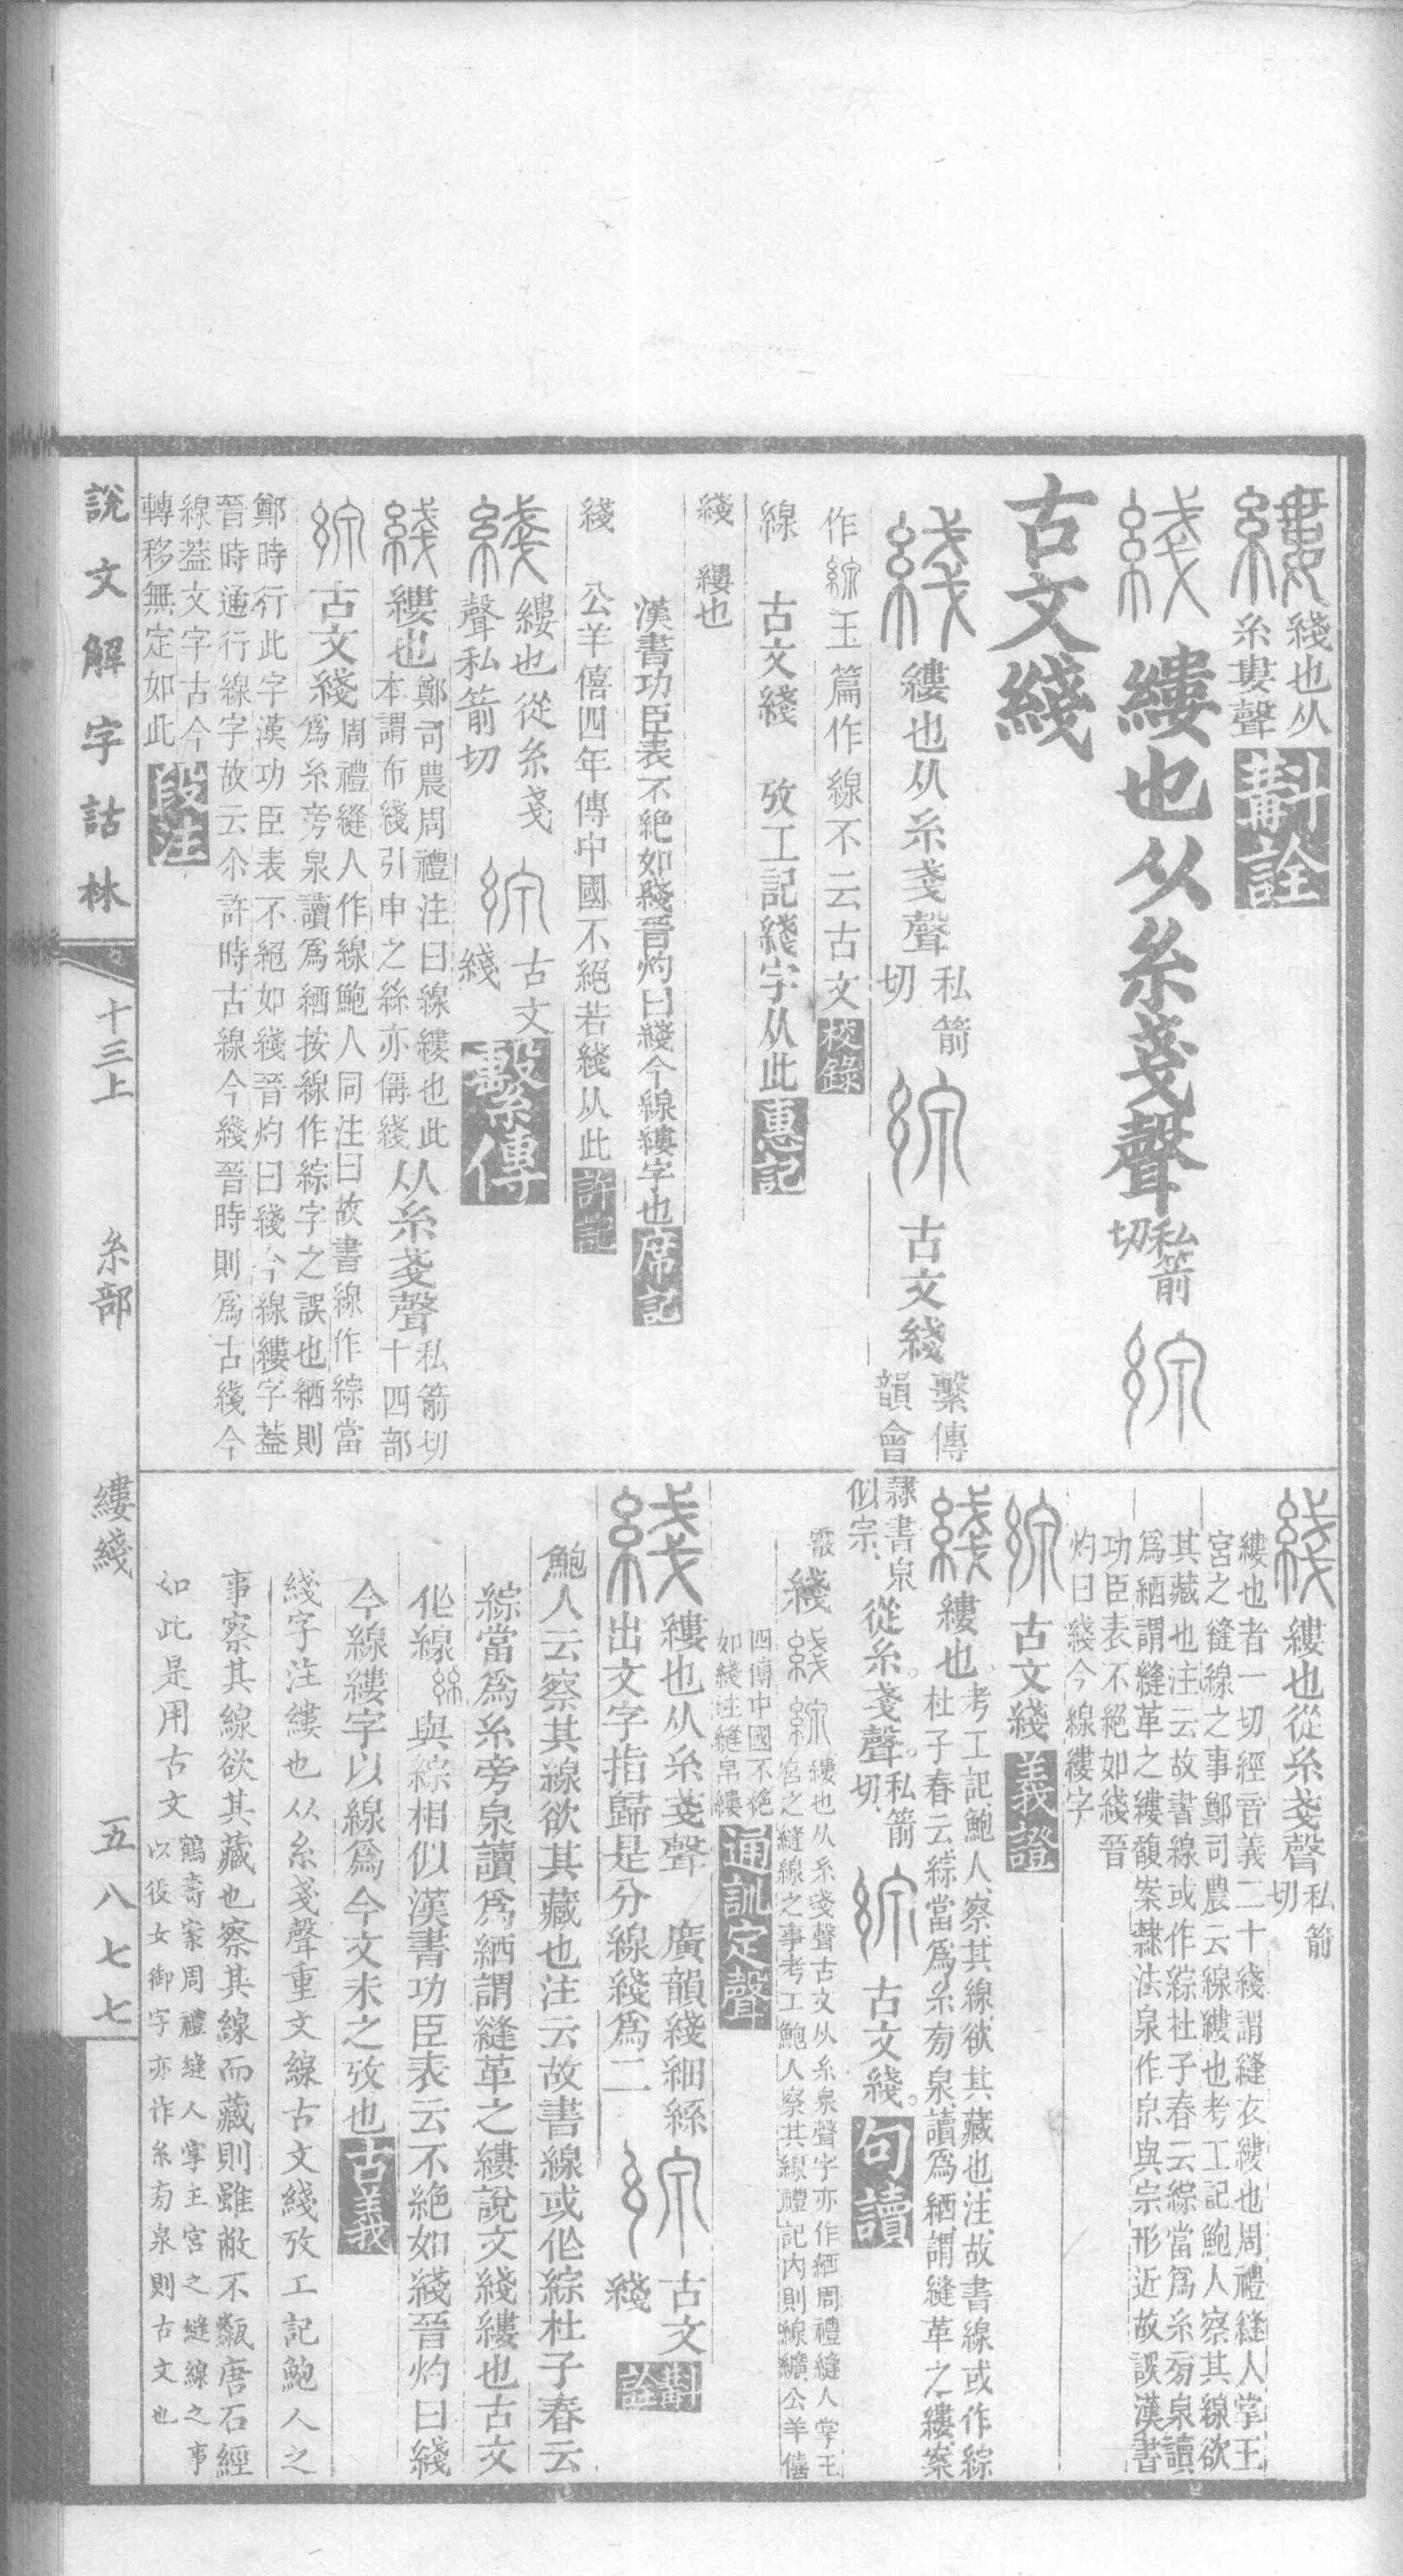 縷綫也从
糸婁聲斠詮
綫縷也从糸戔聲私箭
切線
古文綫
綫縷也从糸戔聲私箭
切線古文綫繫傳
韻會
作線玉篇作線不云古文校錄
線 古文綫 攷工記綫字从此惠記
綫 縷也
漢書功臣表不絶如綫晉灼曰綫今線縷字也席記
綫 公羊僖四年傳中國不絕若綫从此許記
綫縷也從糸戔
聲私箭切
線古文
綫繫傳
綫縷也鄭司農周禮注曰線縷也此
本謂布綫引申之絲亦偁綫从糸戔聲私箭切
十四部
線古文綫周禮縫人作線鮑人同注曰故書線作綜當
爲糸旁泉讀爲絤按線作綜字之誤也絤則
鄭時行此字漢功臣表不絕如綫晉灼曰綫今線縷字葢
晉時通行線字故云尒許時古線今綫晉時則爲古綫今
線葢文字古今
轉移無定如此段注
綫縷也從糸戔聲私箭
切
縷也者一切經音義二十綫謂縫衣縷也周禮縫人掌王
宮之縫線之事鄭司農云線縷也考工記鮑人察其線欲
其藏也注云故書線或作綜杜子春云綜當爲糸旁泉讀
爲絤謂縫革之縷馥案隸法泉作㡭與宗形近故誤漢書
功臣表不絕如綫晉
灼曰綫今線縷字
線古文綫義證
綫縷也。考工記鮑人察其線欲其藏也注故書線或作綜
杜子春云綜當爲糸旁泉讀爲絤謂縫革之縷案
隸書泉
似宗、從糸。戔聲。私箭
切、線古文綫。句讀
綫綫線縷也从糸戔聲古文从糸泉聲字亦作絤周禮縫人掌王
宮之縫線之事考工鮑人察其線禮記內則線纊公羊僖
四傳中國不絶
如綫注縫帛縷通訓定聲
綫縷也从糸戔聲 廣韻綫細絲
出文字指歸是分線綫爲二線古文
綫斠
詮
鮑人云察其線欲其藏也注云故書線或作綜杜子春云
綜當爲糸旁泉讀爲絤謂縫革之縷說文綫縷也古文
作線線與綜相似漢書功臣表云不絶如綫晉灼曰綫
今線縷字以線爲今文未之攷也古義
綫字注縷也从糸戔聲重文線古文綫攷工記鮑人之
事察其線欲其藏也察其線而藏則雖敝不甐唐石經
如此是用古文鶴壽案周禮縫人掌王宮之縫線之事
以役女御字亦作糸旁泉則古文也
說文解字詁林 十三上 糸部 縷綫 五八七七